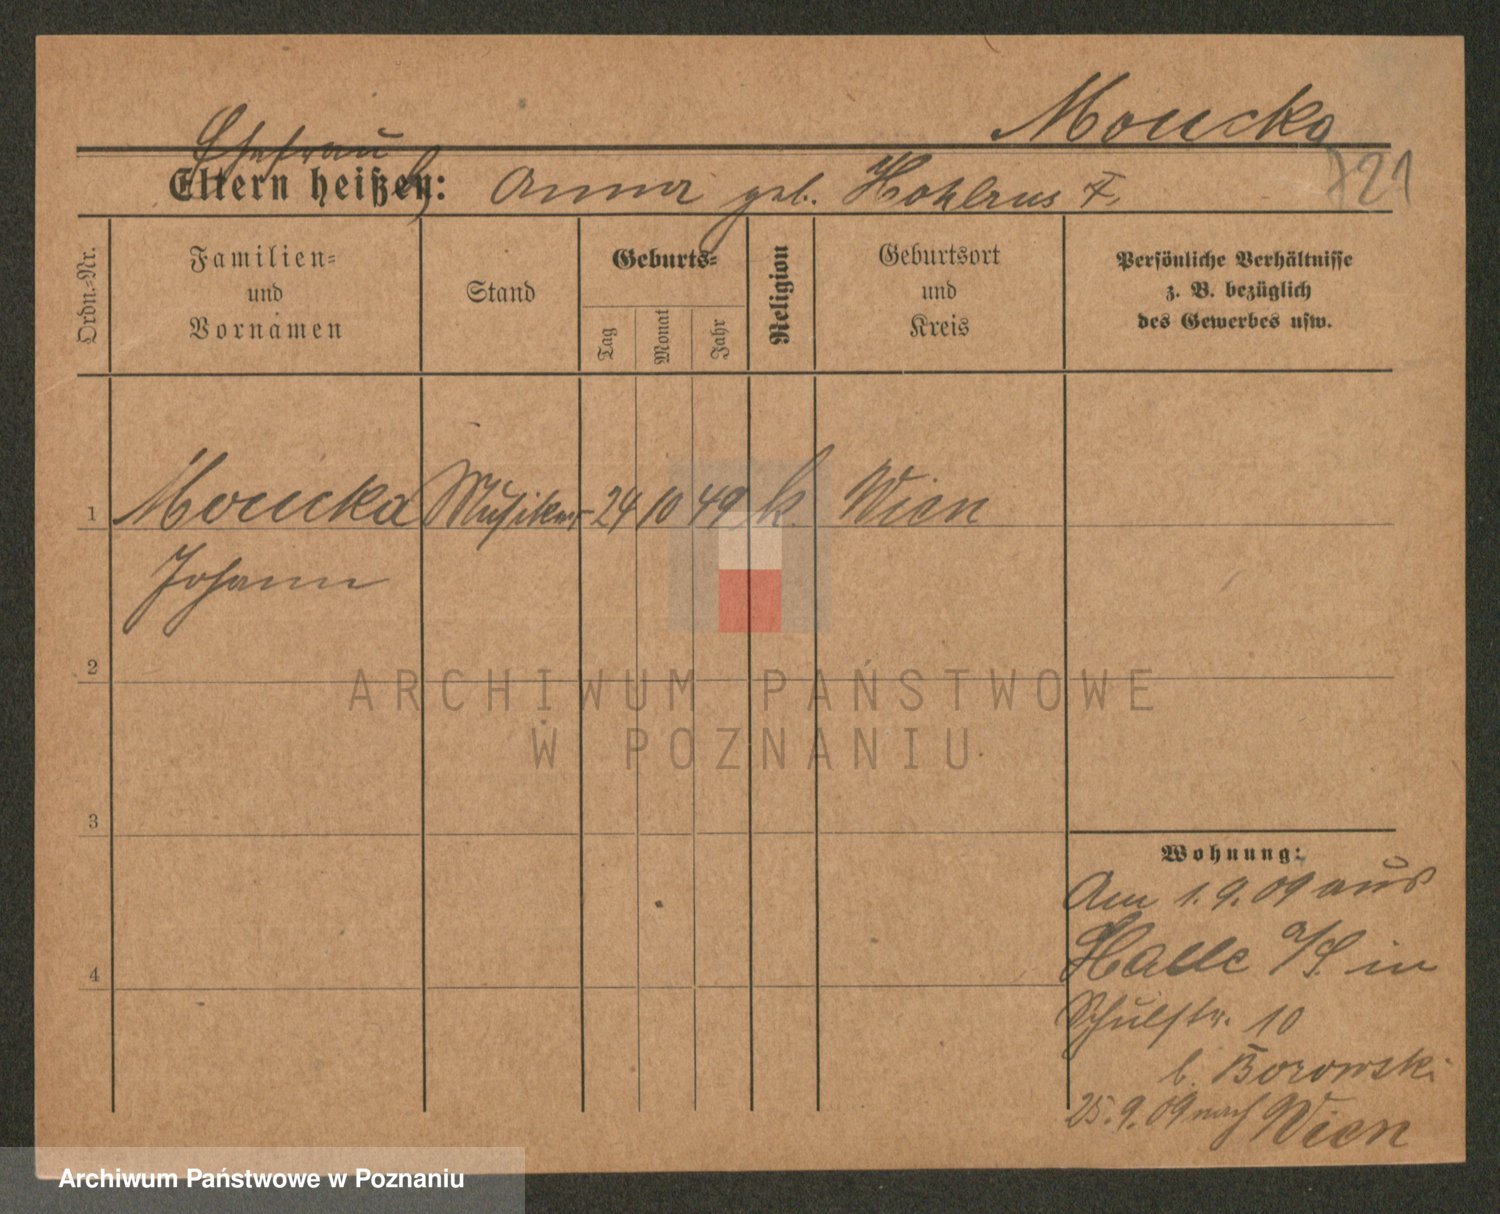 Moucka
721
Ehefrau
Eltern heißen: Anna geb. Kohlaus †.
Ordn.-Nr.
Familien-
und
Vornamen
Stand
Geburts-
Tag
Monat
Jahr
Religion
Geburtsort
und
Kreis
Persönliche Verhältnisse
z. B. bezüglich
des Gewerbes usw.
1 Moucka Musiker 24 10 49 k. Wien
Johann
2
3
4
Wohnung:
Am 1.9.09 aus
Halle a/S. in
Schulstr. 10
b. Borowski
25.9.09 nach Wien
ARCHIWUM PAŃSTWOWE
W POZNANIU
Archiwum Państwowe w Poznaniu